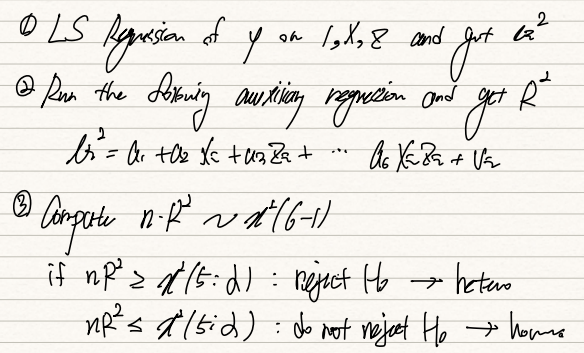 ① LS Regression of y on 1, X, Z and get û²
② Run the following auxiliary regression and get R²
ûi² = a1 + a2 Xi + a3 Zi + ... a6 XiZi + Vi
③ Compute n·R² ~ χ²(6-1)
if nR² ≥ χ²(5:α) : reject H0 → hetero
nR² ≤ χ²(5;α) : do not reject H0 → homo